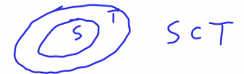 S T S ⊂ T